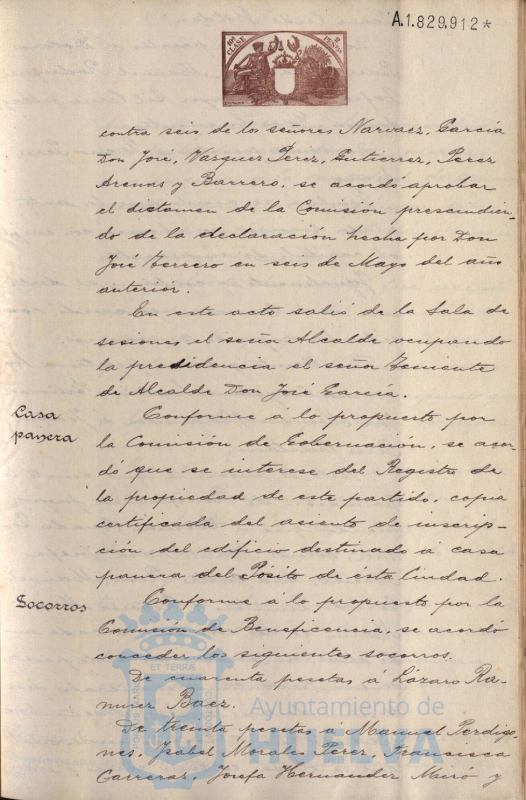 A.1.829.912*
10ª CLASE
2 PESETAS
contra seis de los señores Narvaez, García
Don José, Vazquez Perez, Gutierrez, Perez
Arenas y Barrero, se acordó aprobar
el dictamen de la Comisión prescindien-
do de la declaración hecha por Don
José Ferrero en seis de Mayo del año
anterior.
En este acto salió de la Sala de
sesiones el señor Alcalde ocupando
la presidencia el señor Teniente
de Alcalde Don José García.
Casa
panera
Conforme á lo propuesto por
la Comisión de Gobernación, se acor-
dó que se interese del Registro de
la propiedad de este partido, copia
certificada del asiento de inscrip-
ción del edificio destinado á casa
panera del Pósito de ésta Ciudad.
Socorros
Conforme á lo propuesto por la
Comisión de Beneficencia, se acordó
conceder los siguientes socorros.
De cuarenta pesetas á Lázaro Ra-
mirez Baez.
De treinta pesetas á Manuel Perdigo-
nes, Isabel Morales Perez, Francisca
Carreras, Josefa Hernandez Miro y
ET TERRÆ
Ayuntamiento de
HUELVA